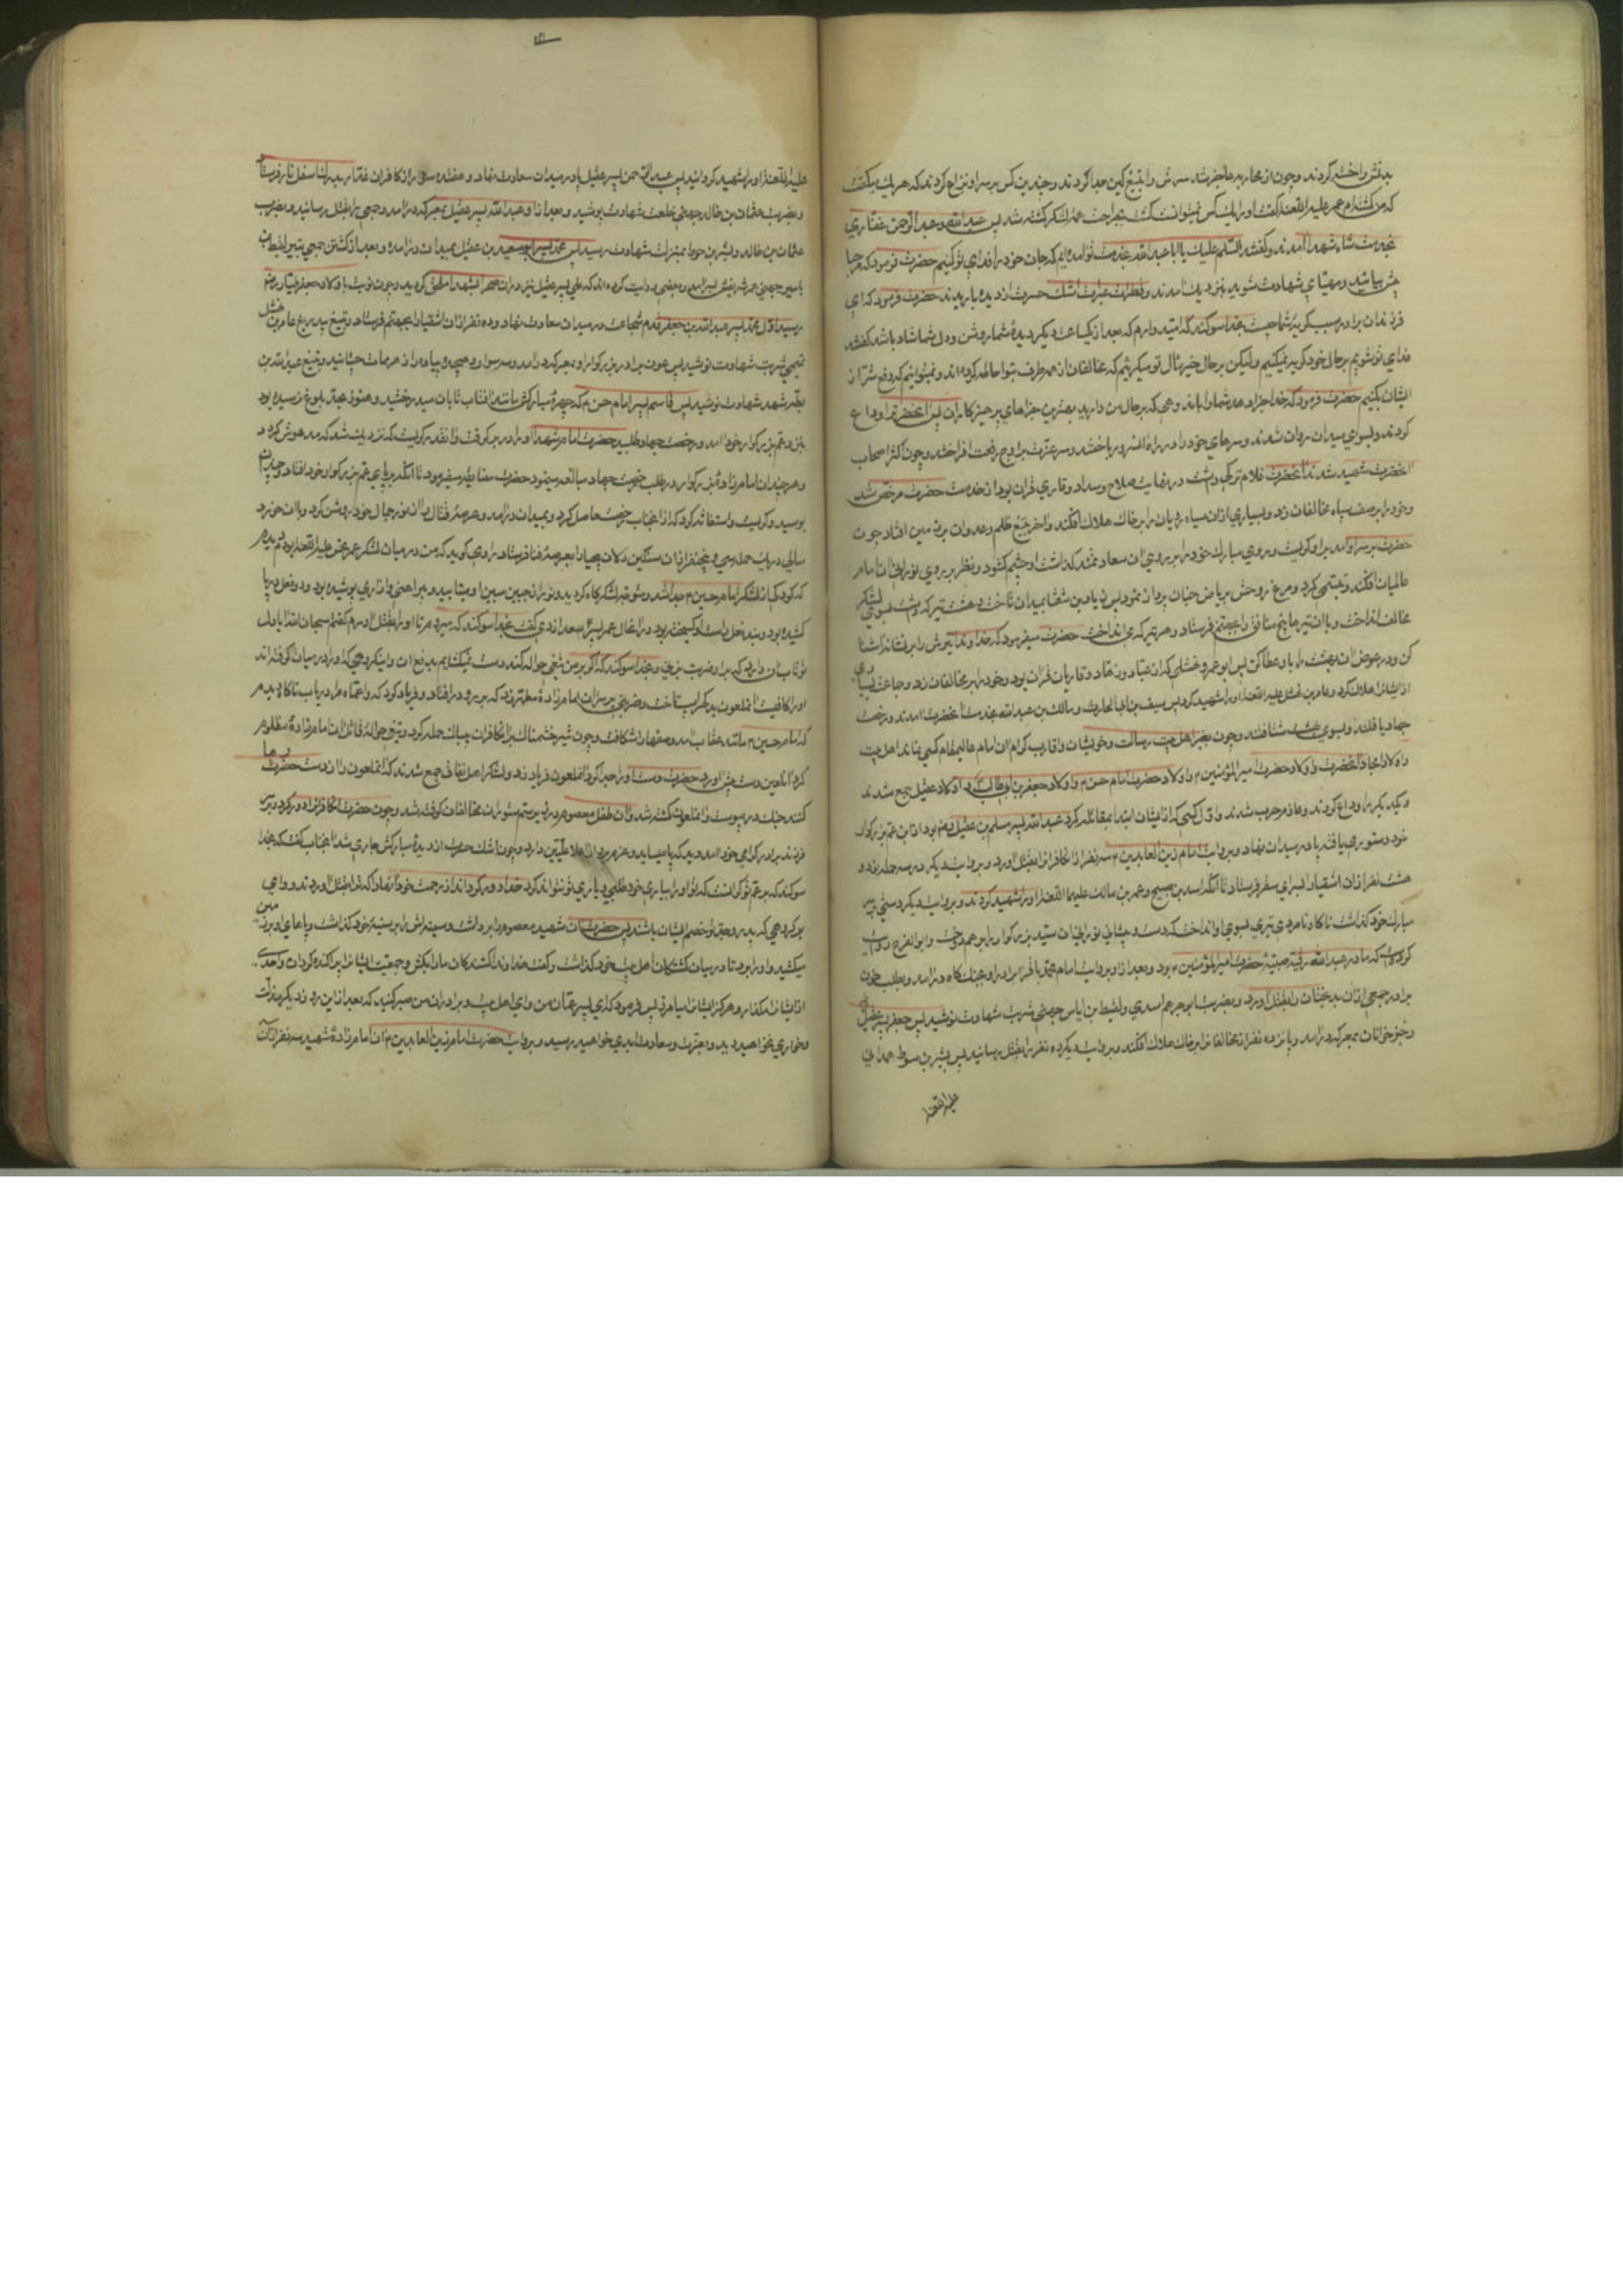 بدنش را خسته کردند و چون از محاربه عاجز شد سرش را بتیغ کین جدا کردند و چندین کس بر سر او نزاع کردند که هر یک میگفت
که من کشته‌ام عمر علیه اللعنه گفت او را یک کس نمیتوانست کشت بجراحت همه لشکر کشته شد پس عبد الله و عبد الرحمن غفاری
بخدمت شاه شهدا آمدند و گفتند السلام علیک یا ابا عبد الله بخدمت تو آمده‌ایم که جان خود را فدای تو کنیم حضرت فرمود که مرحبا
پیش بیائید و مهیای شهادت شوید بنزدیک آمدند و قطرات عبرات اشک حسرت از دیده باریدند حضرت فرمود که ای
فرزندان برادر سبب گریه شما چیست بخدا سوکند که امید دارم که بعد از یکساعت دیگر دیده شما روشن و دل شما شاد باشد گفتند
فدای تو شویم بر حال خود گریه نمیکنیم ولیکن بر حال خیر مآل تو میگرییم که مخالفان از همه طرف بتو احاطه کرده‌اند و نمیتوانیم که دفع شر از
ایشان بکنیم حضرت فرمود که خدا جزا دهد شما را باندوهی که بر حال من دارید بهترین جزاهای پرهیزکاران پس آنحضرت را وداع
کردند و بسوی میدان روان شدند و سرهای خود را در راه آن سرور باختند و سر عزت بر اوج رفعت افراختند و چون اکثر اصحاب
آنحضرت شهید شدند آنحضرت غلام ترکی داشت در نهایت صلاح و سداد و قاری قرآن بود از خدمت حضرت مرخص شد
و خود را بر صف سپاه مخالفان زد و بسیاری از آن سیاه رویان را بر خاک هلاک افکند و آخر بتیغ ظلم و عدوان بر زمین افتاد چون
حضرت بر سر او آمد بر او گریست و روی مبارک خود را بر روی آن سعادتمند گذاشت او چشم گشود و نظر بر روی نورانی آن امام
عالمیان افکند و تبسمی کرد و مرغ روحش بریاض جنان پرواز نمود پس زیاد بن شعثا بمیدان تاخت و هشت تیر که داشت بسوی لشکر
مخالف انداخت و با آن تیرها پنج منافق را بجهنم فرستاد و هر تیر که می انداخت حضرت میفرمود که خداوندا تیرش را بر نشانه آشنا
کن و در عوض آن بهشت را باو عطا کن پس ابو عمرو نهشلی که از عباد و زهاد و قاریان قرآن بود و خود را بر مخالفان زد و جماعت بسیاری
از ایشان را هلاک کرد و عامر بن نهشل علیه اللعنه او را شهید کرد پس سیف بن ابی الحارث و مالک بن عبد الله بخدمت آنحضرت آمدند و رخصت
جهاد یافتند و بسوی بهشت شتافتند و چون بغیر اهل بیت رسالت و خویشان و اقارب کرام آن امام عالیمقام کسی نماند اهل بیت
و اولاد امجاد آنحضرت و اولاد حضرت امیر المؤمنین م و اولاد حضرت امام حسن م و اولاد جعفر بن ابو طالب و اولاد عقیل جمع شدند
و یکدیگر را وداع کردند و عازم حرب شدند و اول کسی که از ایشان ابتدا بمقاتله کرد عبد الله پسر مسلم بن عقیل بود از ابن عم بزرکوار
خود دستوری یافته پا در میدان نهاد و بروایت امام زین العابدین م سه نفر از آن کافران را بقتل آورد و بروایت دیگر در سه حمله نود و
هشت نفر از آن اشقیا را بسرای سقر فرستاد تا آنکه اسد بن صبیح و عمر بن مالک علیهما اللعنه او را شهید کردند و بروایت دیگر دستی بر سر
مبارک خود گذاشت ناگاه نامردی تیری بسوی او انداخت که دست و پیشانی نورانی آن سید بزرگوار را بر هم دوخت و ابو الفرج روایت
کرده است که مادر عبد الله رقیه صبیه حضرت امیر المؤمنین م بود و بعد از او بروایت امام محمد باقر برادر او بجنگاه درآمد و بطلب خون
برادر جمعی از آن بدبختان را بقتل آورد و بضربت ابو جرهم اسدی و لقیط بن ایاس جهنی شربت شهادت نوشید پس جعفر پسر عقیل
رجزخوانان بمعرکه درآمد و پانزده نفر از مخالفان را بر خاک هلاک افکند و بروایت دیگر دو نفر را بقتل رسانید پس بشر بن سوط همدانی
علیه اللعنه
علیه اللعنه او را شهید کردانید پس عبد الرحمن پسر عقیل پا در میدان سعادت نهاد و هفده سوار از کافران غدار بدرک اسفل نار فرستاد
و بضربت عثمان بن خالد جهنی خلعت شهادت پوشید و بعد از او عبد الله پسر عقیل بمعرکه درآمد و جمعی را بقتل رسانید و بضرب
عثمان بن خالد و بشر بن حوط بمنزلت شهادت رسید پس محمد پسر ابو سعید بن عقیل بمیدان درآمد و بعد از کشتن جمعی بتیر لقیط بن
یاسر جهنی عمر شریفش بسر آمد و بعضی روایت کرده‌اند که علی پسر عقیل نیز در آن صحرا بشهدا ملحق گردید و چون نوبت باولاد جعفر طیار رض
رسید اول محمد پسر عبد الله بن جعفر قدم شجاعت در میدان سعادت نهاد و ده نفر از آن اشقیا را بجهنم فرستاد و بتیغ بیدریغ عامر بن نهشل
تمیمی شربت شهادت نوشید پس عون برادر بزرکوار او بمعرکه درآمد و سه سوار و هیجده پیاده را زهر ممات چشانید و بتیغ عبد الله بن
بطه شهد شهادت نوشید پس قاسم پسر امام حسن م که چهره مبارکش مانند آفتاب تابان میدرخشید و هنوز بحد بلوغ نرسیده بود
بنزد عم بزرکوار خود آمد و رخصت جهاد طلبید حضرت امام شهدا او را در بر گرفت و آنقدر گریست که نزدیک شد که مدهوش گردد
و هر چند آن امامزاده بزرکوار در طلب رخصت جهاد مبالغه مینمود حضرت مضایقه میفرمود تا آنکه بر پای عم بزرکوار خود افتاد و چندان
بوسید و گریست و استغاثه کرد که از آنجناب رخصت حاصل کرد و بمیدان درآمد و عرصه قتال را از نور جمال خود روشن کرد و با آن خورد
سالی در یک حمله سی و پنج نفر از آن سنگین دلان بیحیا را بعرصه فنا فرستاد راوی گوید که من در میان لشکر عمر نحس علیه اللعنه بودم دیدم
که کودکی از لشکر امام حسین م جدا شد و متوجه لشکرگاه گردید و نور از جبین مبین او میتابید و پیراهنی و ازاری پوشیده بود و دو نعل در پا
کشیده بود و بند نعل راست او گسیخته بود در آنحال عمر پسر سعد ازدی گفت بخدا سوکند که میروم تا او را بقتل آورم گفتم سبحان الله آیا دل
تو تاب آن دارد که بر او ضربت بزنی و بخدا سوکند که اگر بر من تیغی حواله کند دست نمیگشایم بدفع آن و این گروهی که او را در میان گرفته‌اند
او را کافیست آنملعون بدگهر اسب تاخت و ضربتی بر سر آن امامزاده مطهر زد که بر رو درافتاد و فریاد کرد که وا عماه مرا دریاب ناگاه دیدم
که امام حسین م مانند عقاب آمد و صفها را شکافت و چون شیر خشمناک بر آن کافران بیباک حمله کرد و تیغی حواله قاتل آن امامزاده مظلوم
کرد آن لعین دست پیش آورد حضرت دستش را جدا کرد آنملعون فریاد زد و لشکر اهل نفاق جمع شدند که آنملعون را از دست حضرت رها
کنند جنگ در پیوست و آنملعون کشته شد و آن طفل معصوم در زیر سم ستوران مخالفان کوفته شد و چون حضرت آن کافران را دور کرد و بر سر
فرزند برادر گرامی خود آمد دید که پا میساید و عزم پرواز اعلا علیین دارد و چون اشک حسرت از دیده مبارکش جاری شد آنجناب گفت که بخدا
سوکند که بر عم تو گرانست که تو او را بیاری خود طلبی و یاری تو نتواند کرد خدا دور گرداند از رحمت خود آنها را که ترا بقتل آوردند و وای
بر گروهی که پدر و جد تو خصم ایشان باشند پس حضرت آن شهید معصوم را برداشت و سینه‌اش را بر سینه خود گذاشت و پاهای او بر زمین
میکشید و او را برد تا در میان کشتگان اهل بیت خود گذاشت و گفت خداوندا کشندگان ما را بکش و جمعیت ایشان را پراکنده گردان و احدی
از ایشان را مگذار و هرگز ایشان را میامرز پس فرمود که ای پسر عمان من و ای اهل بیت و برادران من صبر کنید که بعد از این روز دیگر مذلت
و خواری نخواهید دید و بعزت و سعادت ابدی خواهید رسید و بروایت حضرت امام زین العابدین م از آن امامزاده شهید سه نفر از آن